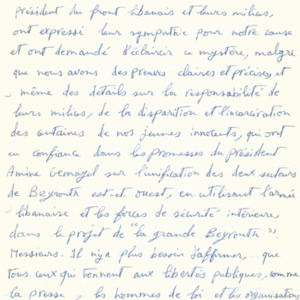 président du front libanais et leurs milices,
ont exprimé leur sympathie pour notre cause
et ont demandé d'éclaircir ce mystère, malgré
que nous avons des preuves claires et précises et
même des détails sur la responsabilité de
leurs milices, de la disparition et l'incarcération
des centaines de nos jeunes innocents, qui ont
eu confiance dans les promesses du président
Amine Gemayel sur l'unification des deux secteurs
de Beyrouth est et ouest, en utilisant l'armée
libanaise et les forces de sécurité intérieure
dans le projet de "la grande Beyrouth"
Messieurs. Il n'y a plus besoin d'affirmer, que
tous ceux qui tiennent aux libertés publiques, comme
la presse, les hommes de loi et les organisations